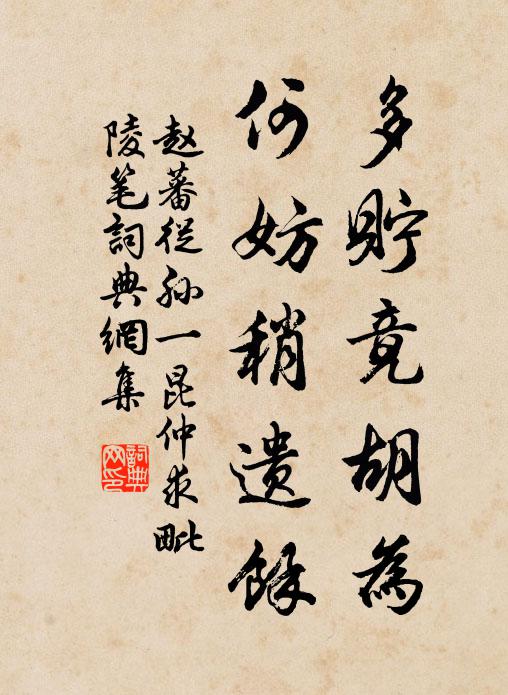 多貯竟胡為
何妨稍遺餘
赵蕃從孙一昆仲求毗
陵笔詞典網集
詞典
网印